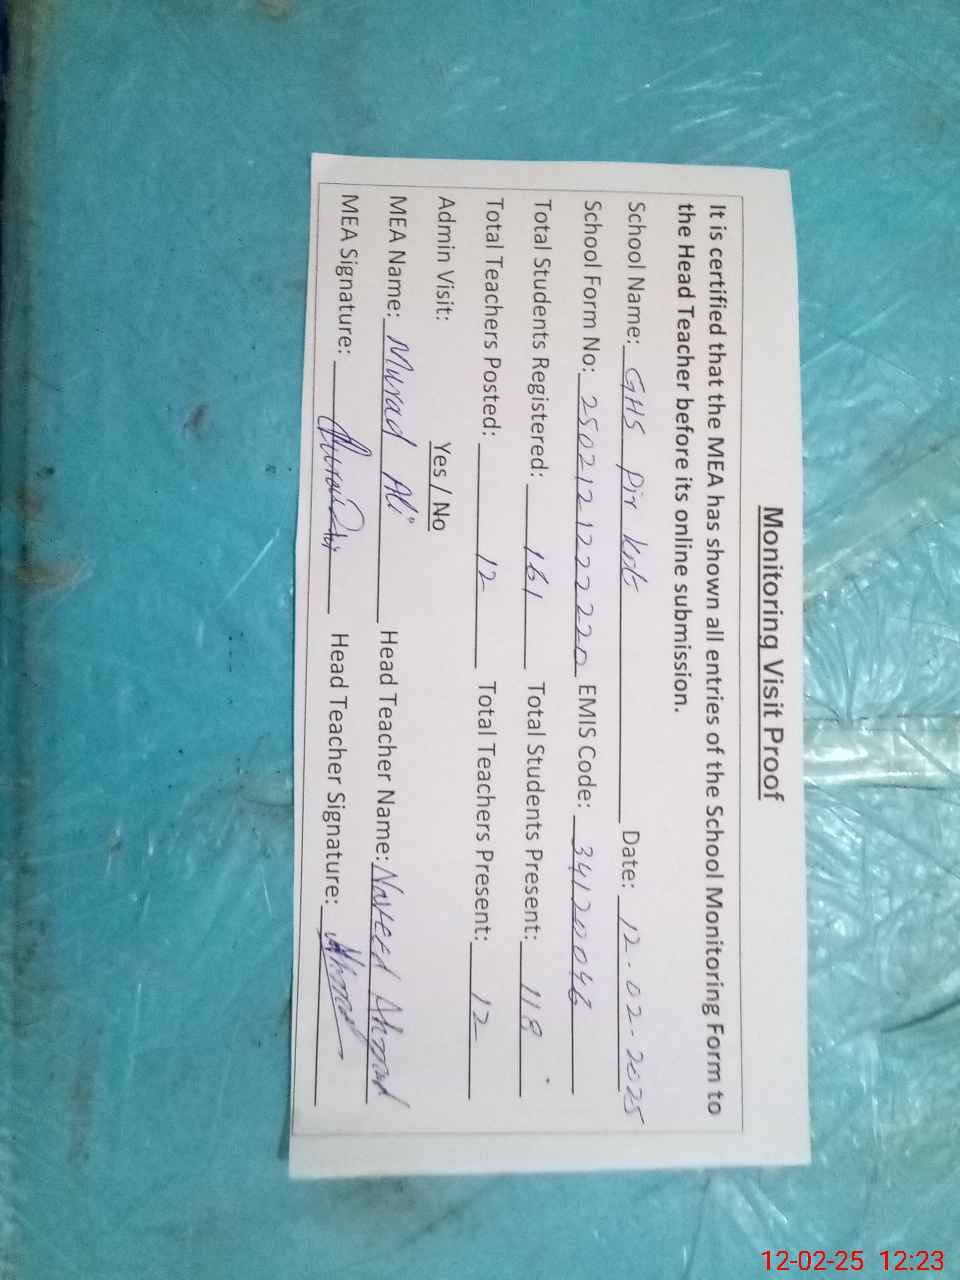 Monitoring Visit Proof
It is certified that the MEA has shown all entries of the School Monitoring Form to
the Head Teacher before its online submission.
School Name: GHS Pir kot Date: 12-02-2025
School Form No: 25021212222220 EMIS Code: 34120046
Total Students Registered: 161 Total Students Present: 118
Total Teachers Posted: 12 Total Teachers Present: 12
Admin Visit: Yes / No
MEA Name: Murad Ali Head Teacher Name: Naveed Ahmad
MEA Signature: Head Teacher Signature: Ahmad
12-02-25 12:23